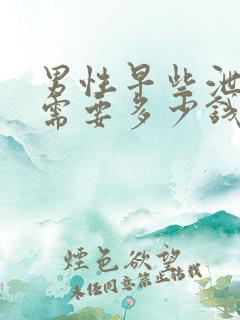 男性早些泄
需要多少钱
煙色欲望
未经同意禁止转载